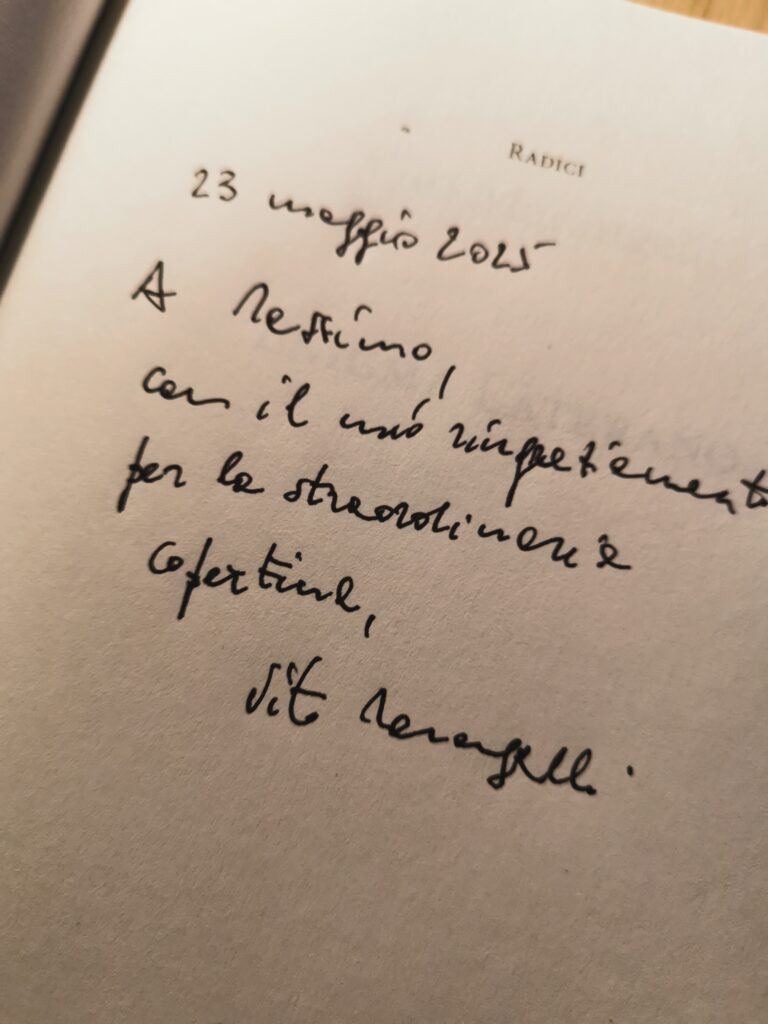 RADICI
23 maggio 2025
A Massimo,
con il mio ringraziamento
per la straordinaria
copertina,
Vito Marangelli